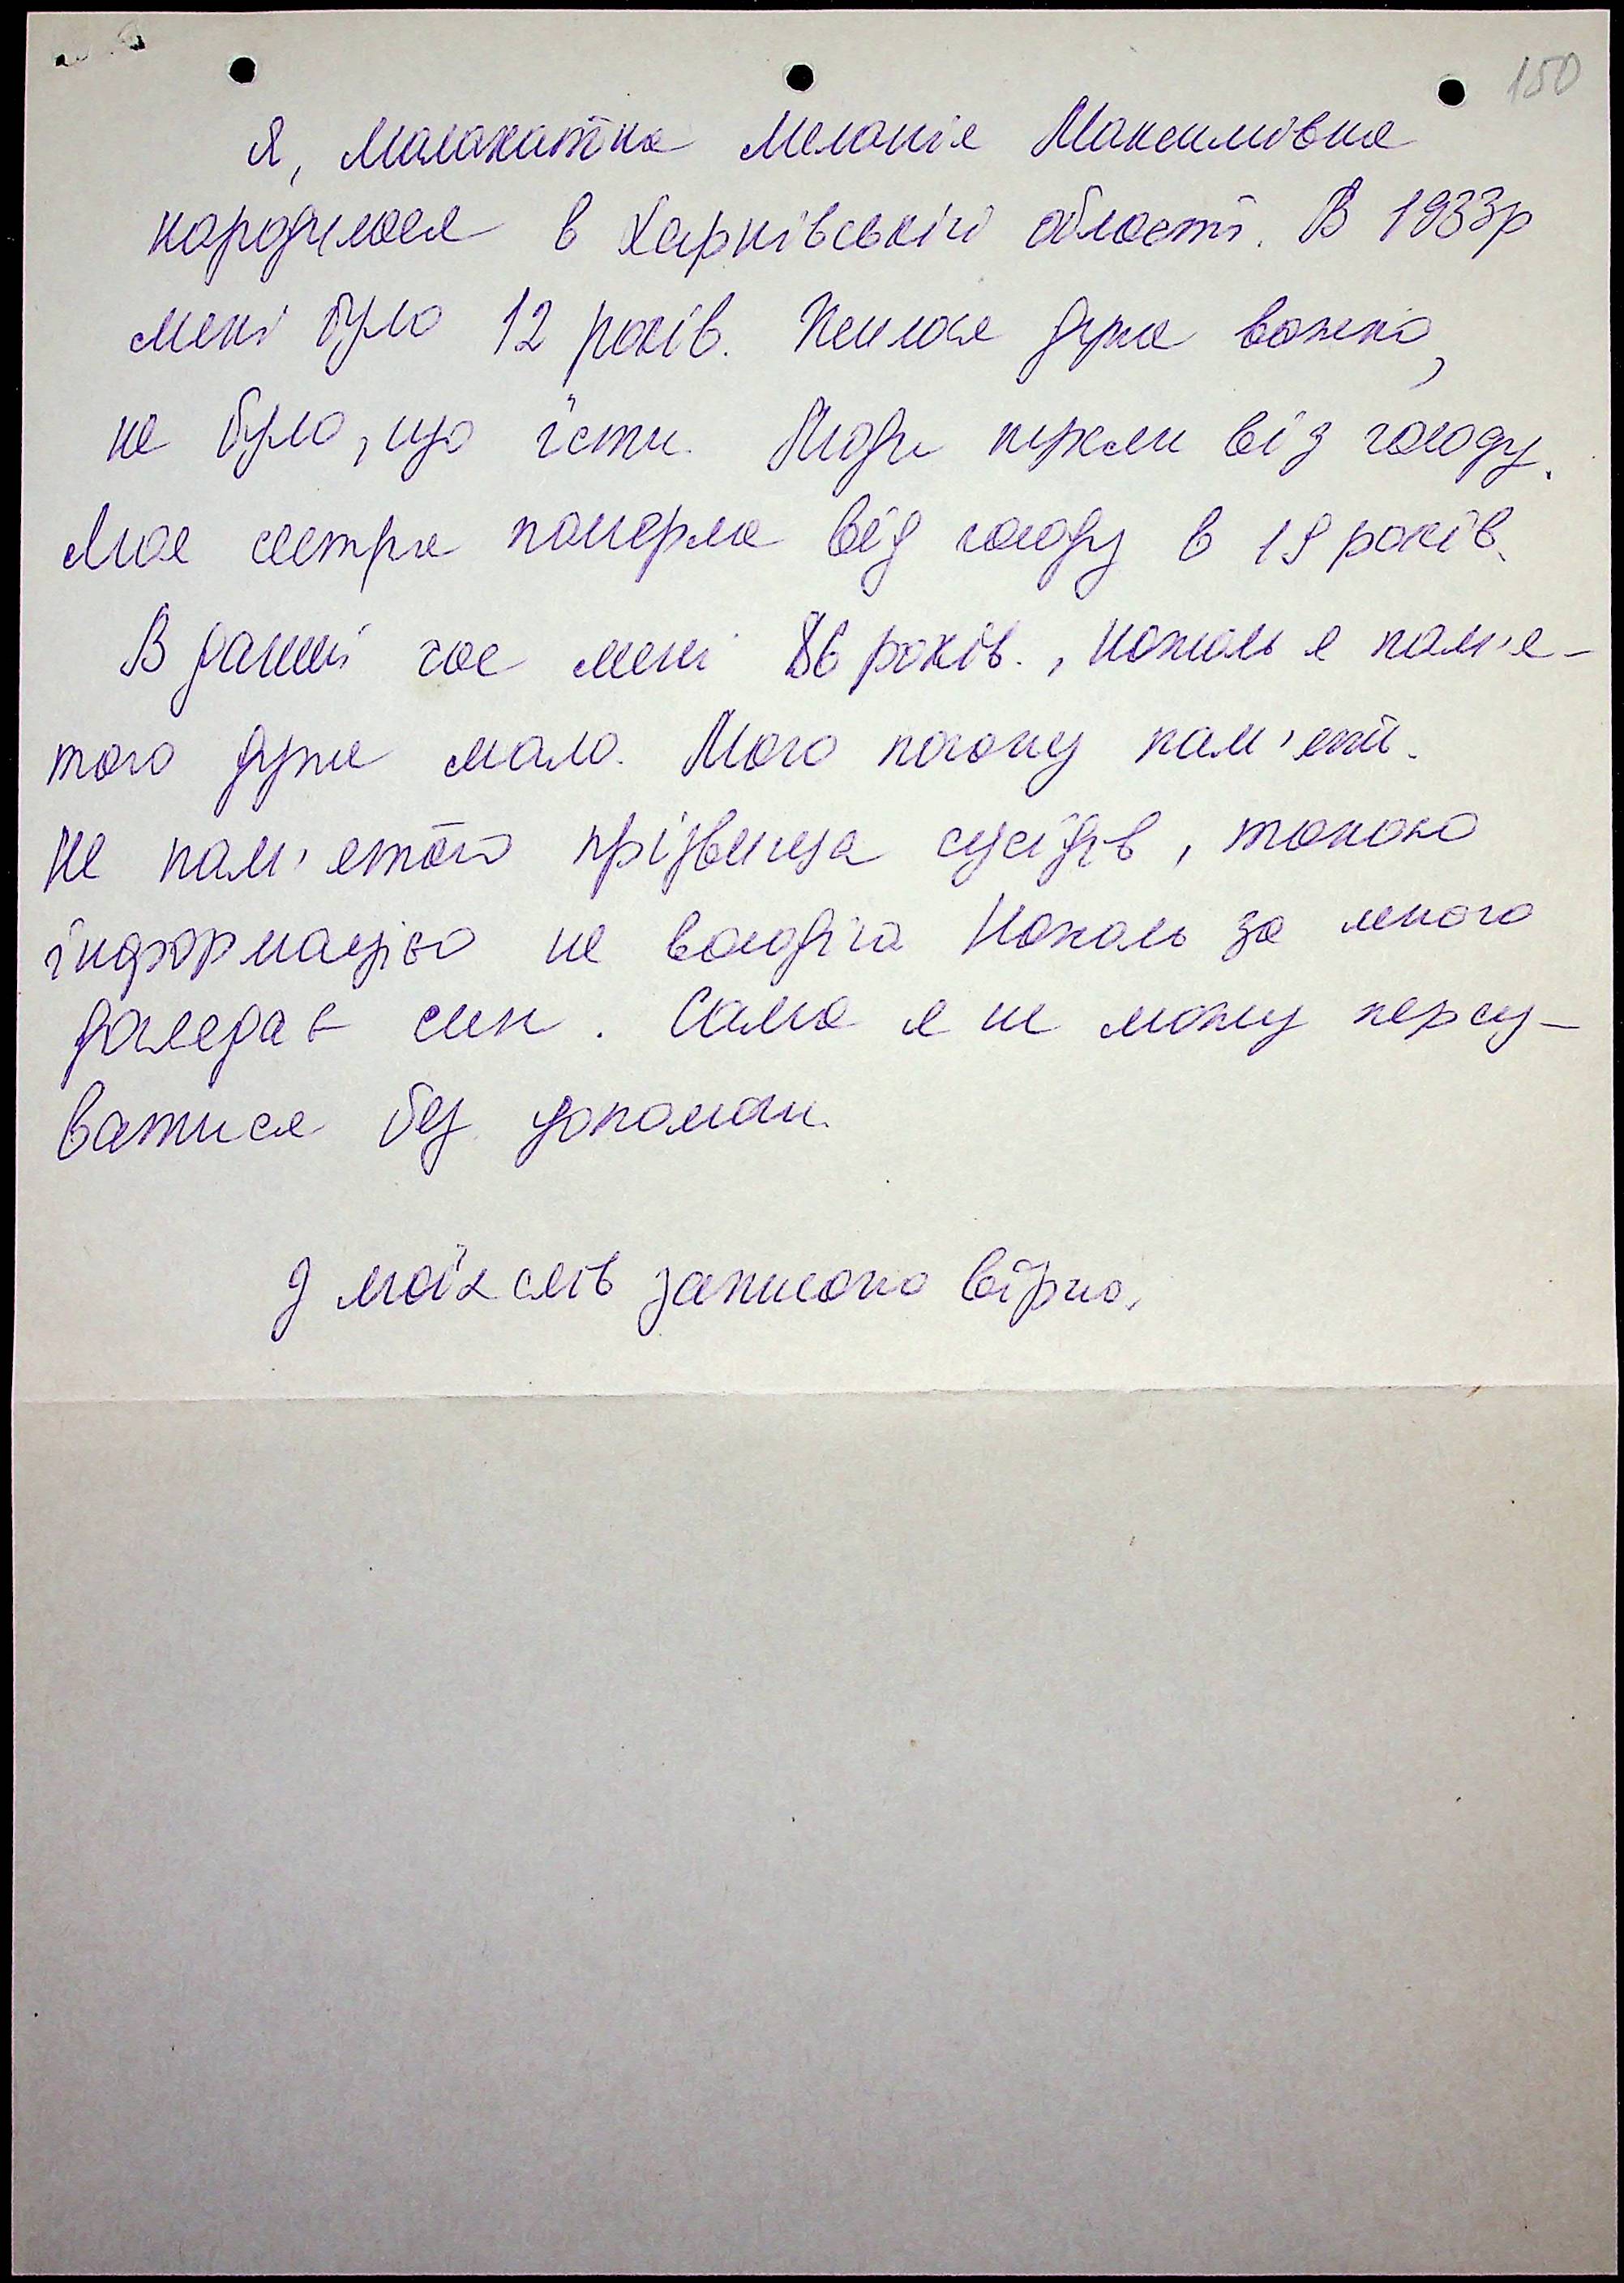 150
Я, Меланія Максимівна
народилася в Харківській області. В 1933р
мені було 12 років. Жилося дуже важко,
не було, що їсти. Люди пухли від голоду.
Моя сестра померла від голоду в 19 років.
В даний час мені 86 років., на жаль я пам'я-
таю дуже мало. Маю погану пам'ять.
Не пам'ятаю прізвища сусідів, такою
інформацією не володію На жаль за мною
доглядає син. Сама я не можу персу-
ватися без допомоги.
З моїх слів записано вірно.